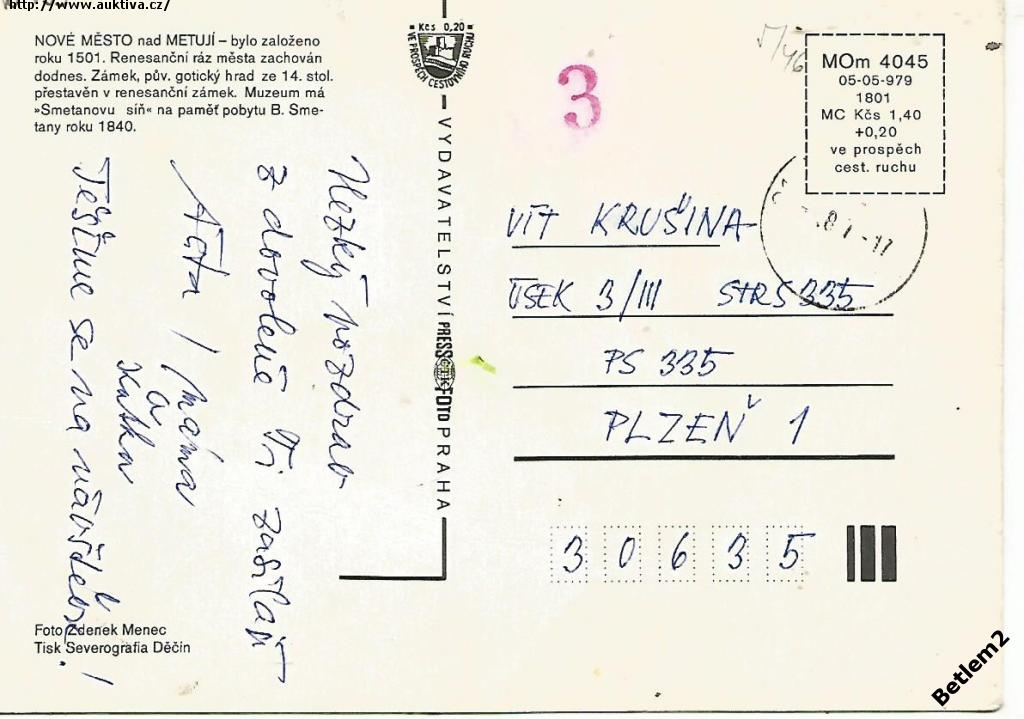 http://www.auktiva.cz/
NOVÉ MĚSTO nad METUJÍ – bylo založeno
roku 1501. Renesanční ráz města zachován
dodnes. Zámek, pův. gotický hrad ze 14. stol.
přestavěn v renesanční zámek. Muzeum má
»Smetanovu síň« na paměť pobytu B. Sme-
tany roku 1840.
Hezký pozdrav
z dovolené Ti zasílají
Táta / máma
a
Katka
Těšíme se na návštěvu!
Foto Zdenek Menec
Tisk Severografia Děčín
Kčs 0,20
VE PROSPĚCH CESTOVNÍHO RUCHU
VYDAVATELSTVÍ PRESSFOTO PRAHA
ČTK
3
MOm 4045
05-05-979
1801
MC Kčs 1,40
+0,20
ve prospěch
cest. ruchu
VÍT KRUŠINA
ÚSEK 3/III STRS 335
PS 335
PLZEŇ 1
30635
Betlem2